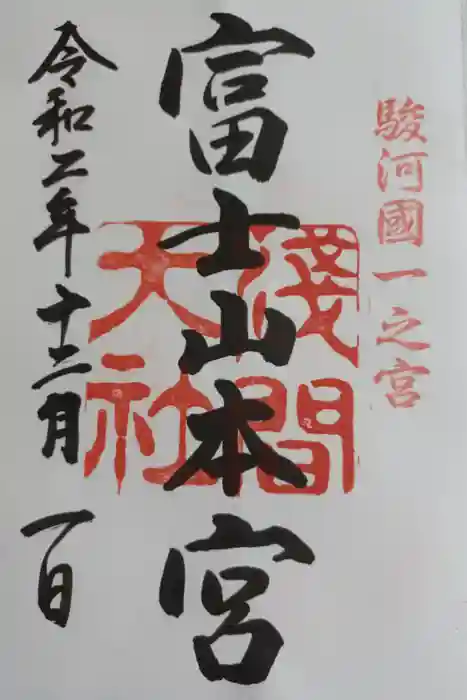 駿河國一之宮
富士山本宮
淺間大社
令和二年十二月一日